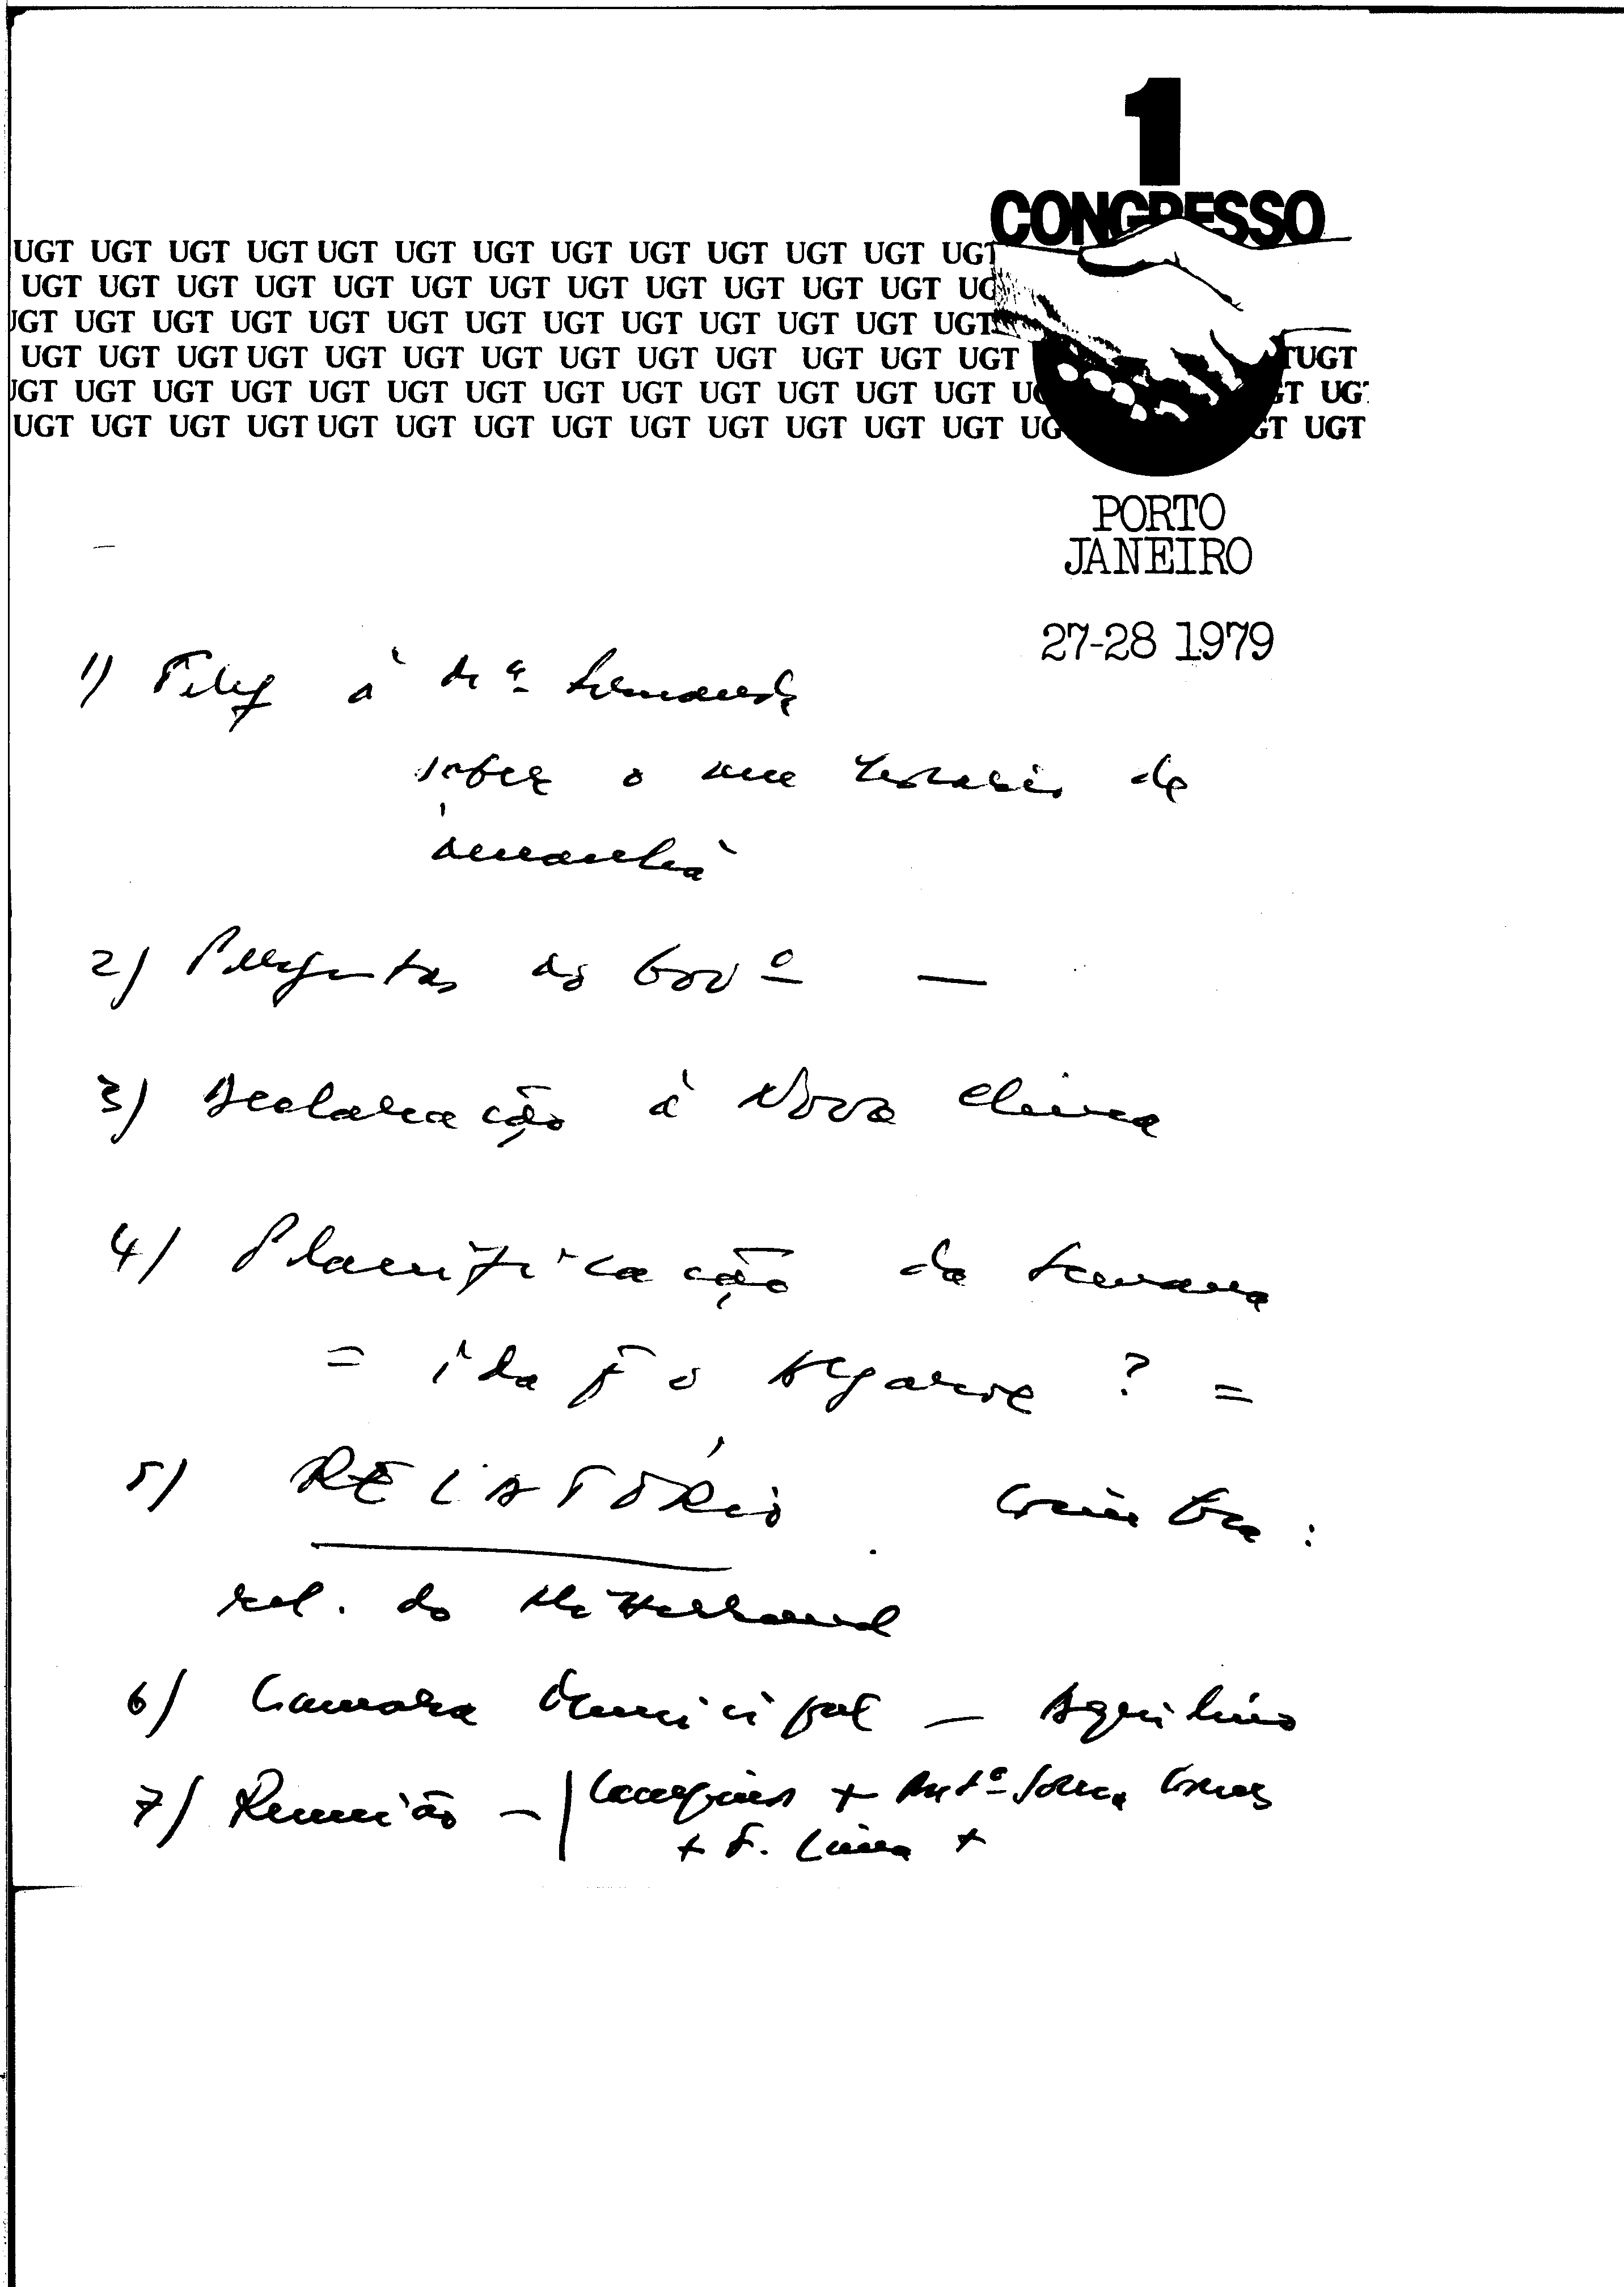 1
CONGRESSO
UGT UGT UGT UGT UGT UGT UGT UGT UGT UGT UGT UGT UGT
UGT UGT UGT UGT UGT UGT UGT UGT UGT UGT UGT UGT UG
UGT UGT UGT UGT UGT UGT UGT UGT UGT UGT UGT UGT UGT
UGT UGT UGT UGT UGT UGT UGT UGT UGT UGT UGT UGT UGT TUGT
UGT UGT UGT UGT UGT UGT UGT UGT UGT UGT UGT UGT UGT UG GT UGT
UGT UGT UGT UGT UGT UGT UGT UGT UGT UGT UGT UGT UGT UG GT UGT
PORTO
JANEIRO
27-28 1979
1) Telef à Mª Fernanda
sobre o meu horário de
amanhã
2) Perguntas ao Govº —
3) Declaração à Nova China
4) Planificação da semana
= ida pº o Algarve ? =
5) RELATÓRIO . Coimbra :
rel. do Mitterrand
6) Camara Municipal — Aquilino
7) Reunião — | Campinos + Antº Sousa Gomes
+ F. Lima +